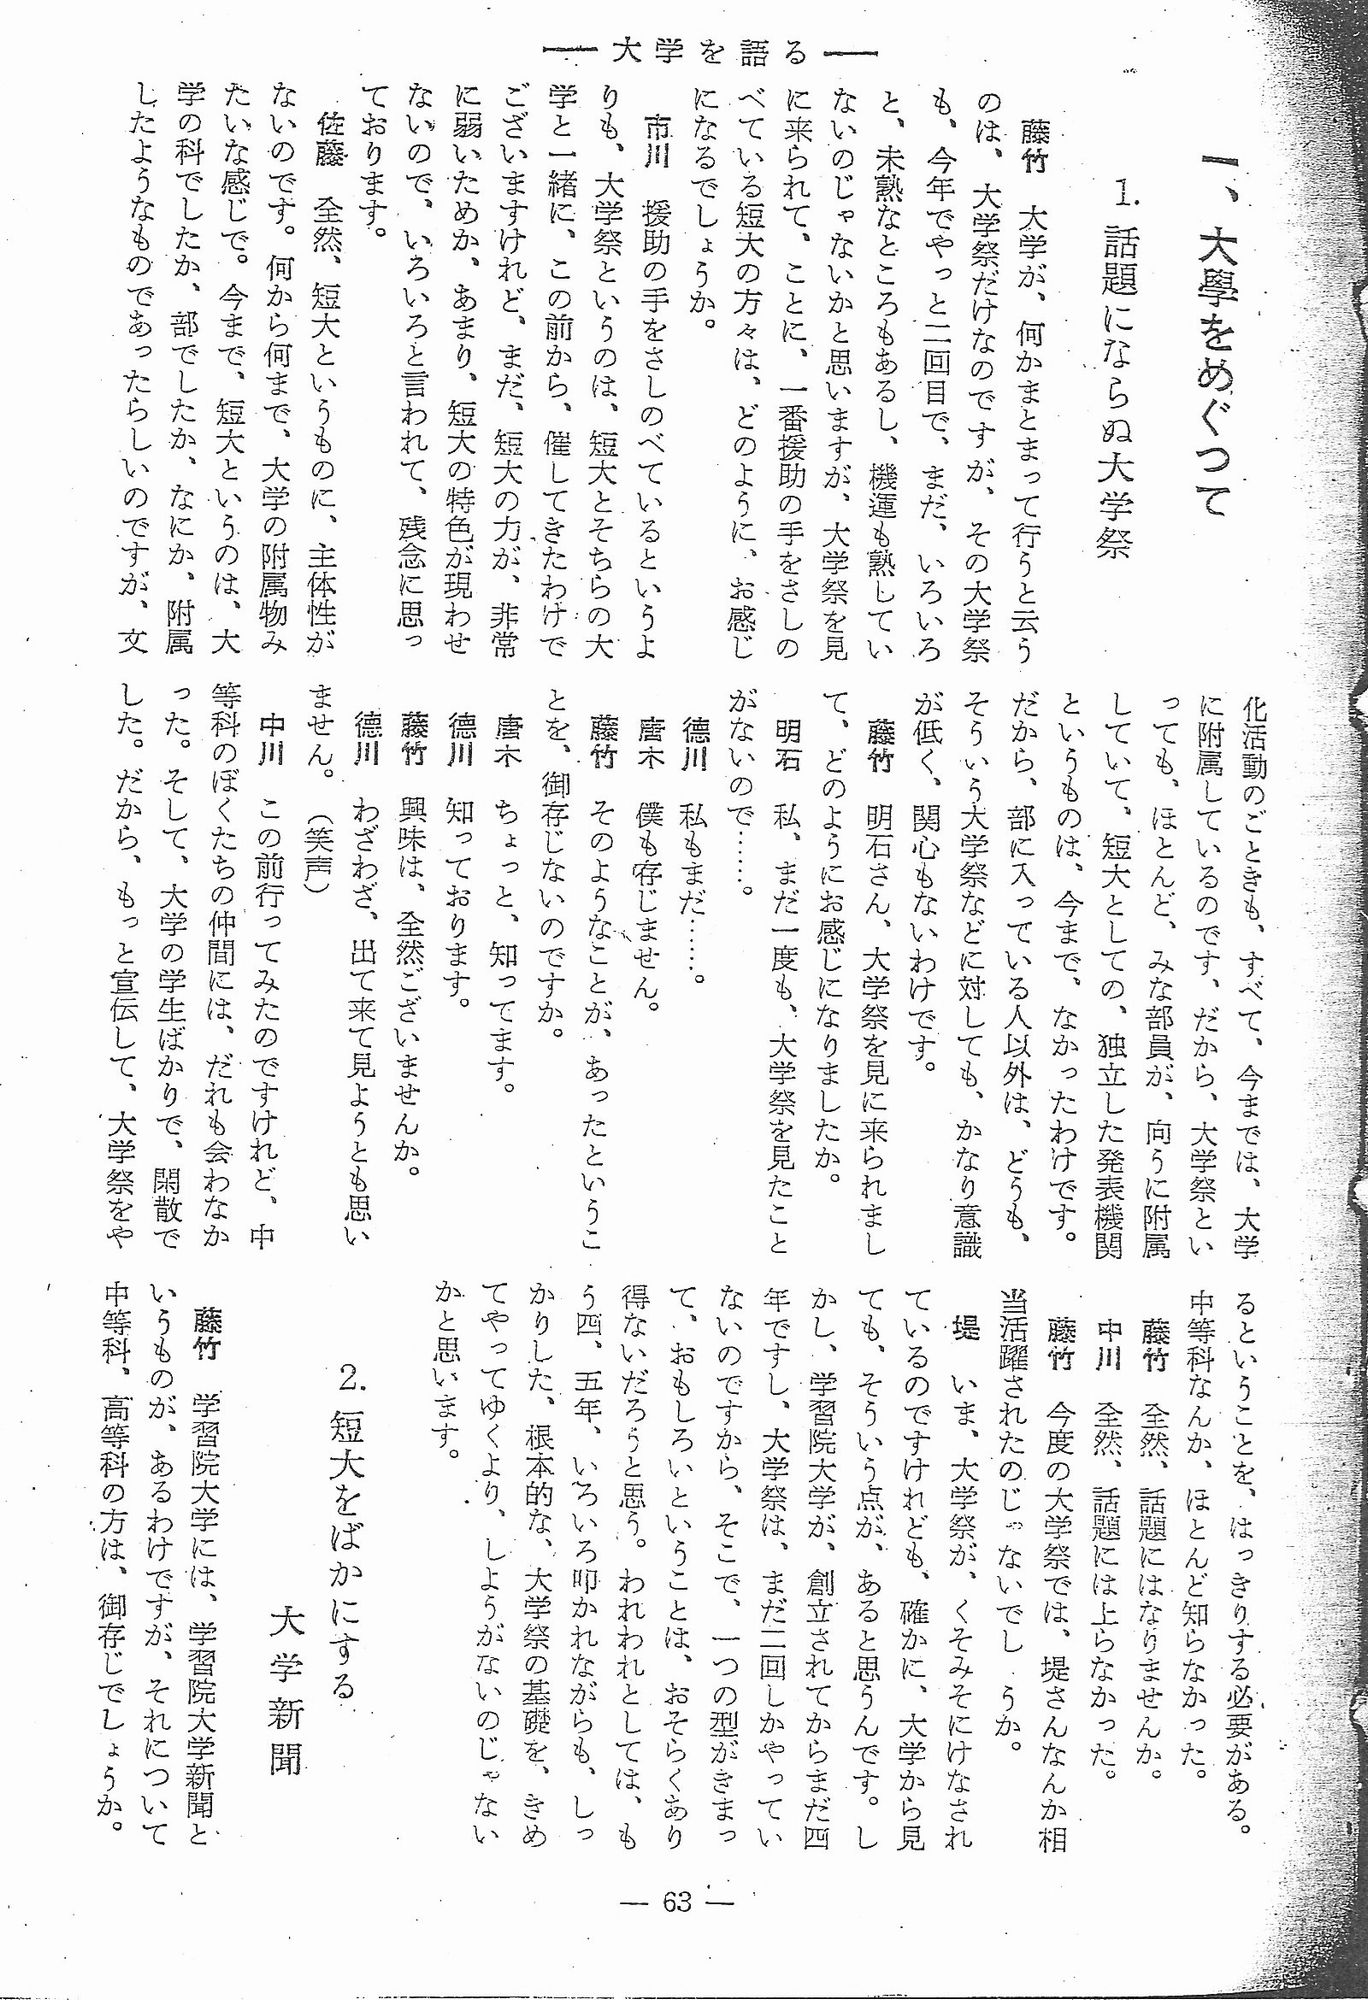 ― 大学を語る ―
一、大學をめぐつて
1. 話題にならぬ大学祭
藤竹　大学が、何かまとまって行うと云う
のは、大学祭だけなのですが、その大学祭
も、今年でやっと二回目で、まだ、いろいろ
と、未熟なところもあるし、機運も熟してい
ないのじゃないかと思いますが、大学祭を見
に来られて、ことに、一番援助の手をさしの
べている短大の方々は、どのように、お感じ
になるでしょうか。
市川　援助の手をさしのべているというよ
りも、大学祭というのは、短大とそちらの大
学と一緒に、この前から、催してきたわけで
ございますけれど、まだ、短大の力が、非常
に弱いためか、あまり、短大の特色が現わせ
ないので、いろいろと言われて、残念に思っ
ております。
佐藤　全然、短大というものに、主体性が
ないのです。何から何まで、大学の附属物み
たいな感じで。今まで、短大というのは、大
学の科でしたか、部でしたか、なにか、附属
したようなものであったらしいのですが、文
化活動のごときも、すべて、今までは、大学
に附属しているのです、だから、大学祭とい
っても、ほとんど、みな部員が、向うに附属
していて、短大としての、独立した発表機関
というものは、今まで、なかったわけです。
だから、部に入っている人以外は、どうも、
そういう大学祭などに対しても、かなり意識
が低く、関心もないわけです。
藤竹　明石さん、大学祭を見に来られまし
て、どのようにお感じになりましたか。
明石　私、まだ一度も、大学祭を見たこと
がないので……。
徳川　私もまだ……。
唐木　僕も存じません。
藤竹　そのようなことが、あったというこ
とを、御存じないのですか。
唐木　ちょっと、知ってます。
徳川　知っております。
藤竹　興味は、全然ございませんか。
徳川　わざわざ、出て来て見ようとも思い
ません。（笑声）
中川　この前行ってみたのですけれど、中
等科のぼくたちの仲間には、だれも会わなか
った。そして、大学の学生ばかりで、閑散で
した。だから、もっと宣伝して、大学祭をや
るということを、はっきりする必要がある。
中等科なんか、ほとんど知らなかった。
藤竹　全然、話題にはなりませんか。
中川　全然、話題には上らなかった。
藤竹　今度の大学祭では、堤さんなんか相
当活躍されたのじゃないでしょうか。
堤　いま、大学祭が、くそみそにけなされ
ているのですけれども、確かに、大学から見
ても、そういう点が、あると思うんです。し
かし、学習院大学が、創立されてからまだ四
年ですし、大学祭は、まだ二回しかやってい
ないのですから、そこで、一つの型がきまっ
て、おもしろいということは、おそらくあり
得ないだろうと思う。われわれとしては、も
う四、五年、いろいろ叩かれながらも、しっ
かりした、根本的な、大学祭の基礎を、きめ
てやってゆくより、しようがないのじゃない
かと思います。
2. 短大をばかにする
大学新聞
藤竹　学習院大学には、学習院大学新聞と
いうものが、あるわけですが、それについて
中等科、高等科の方は、御存じでしょうか。
― 63 ―